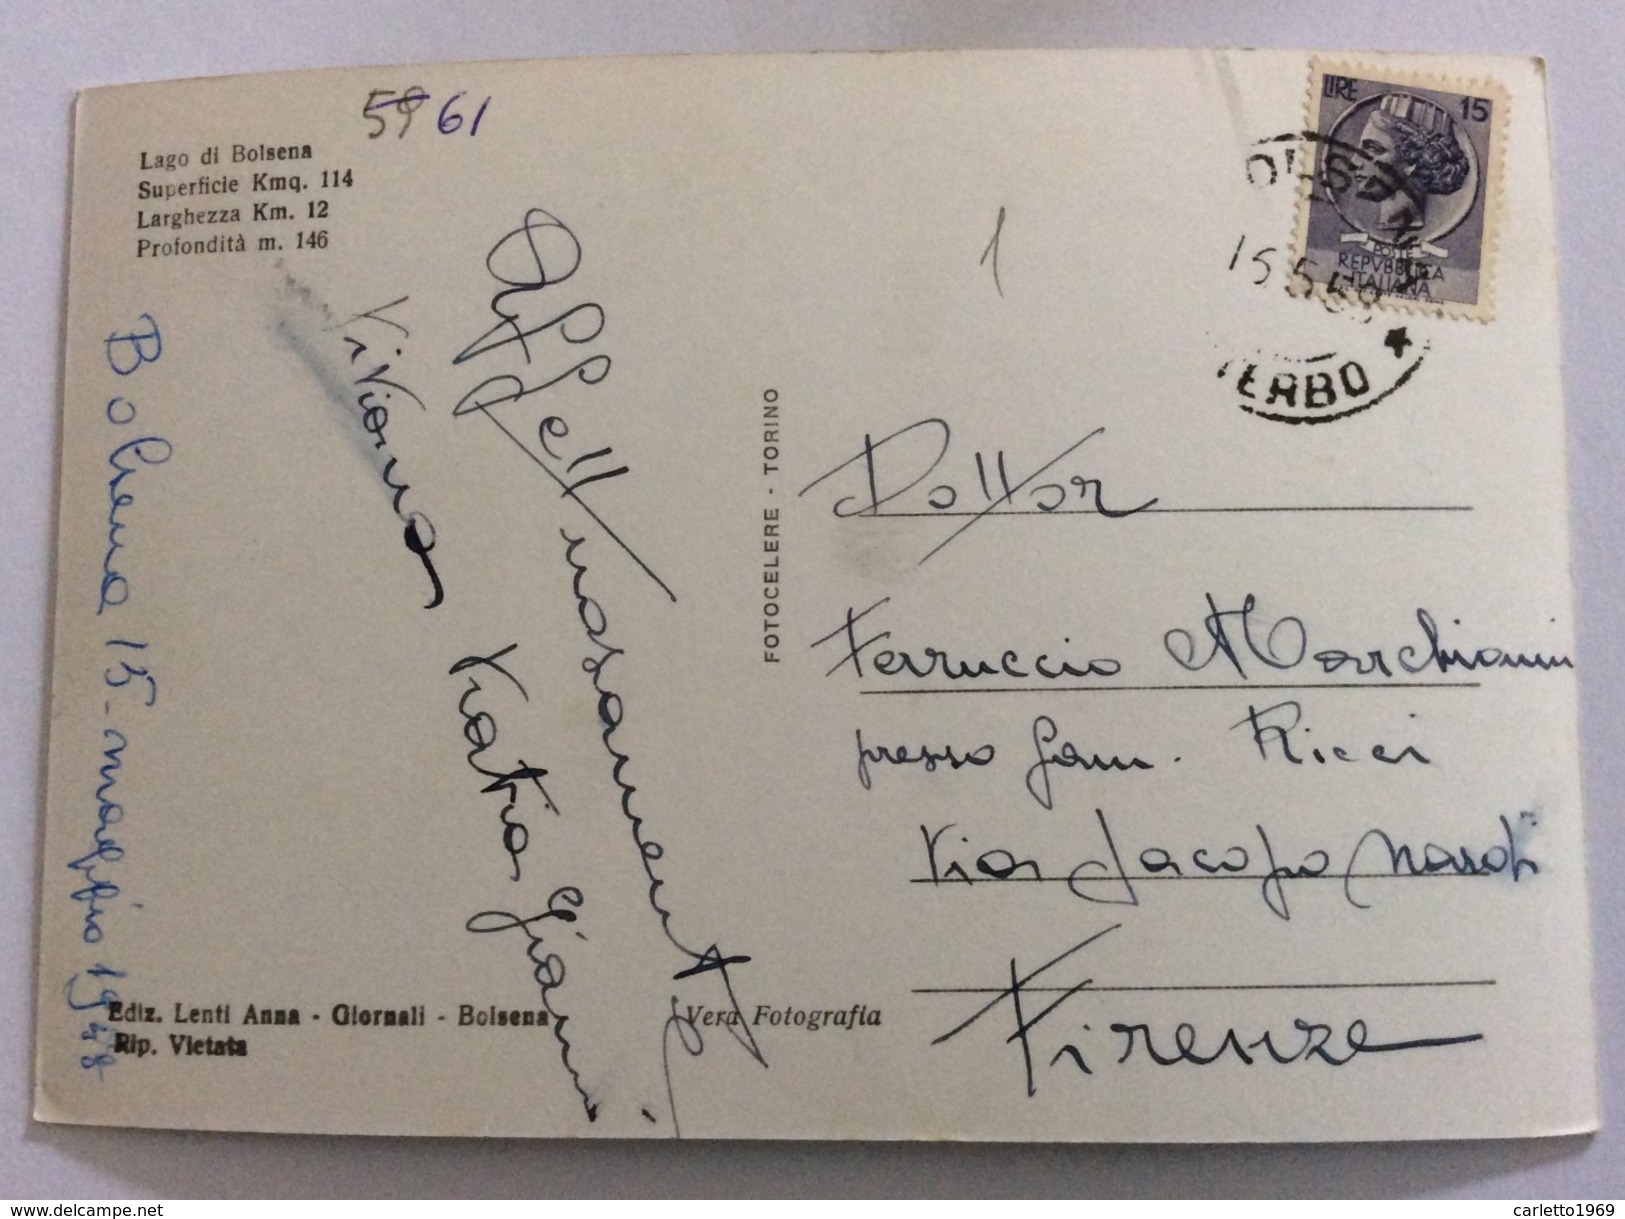 59 61
Lago di Bolsena
Superficie Kmq. 114
Larghezza Km. 12
Profondità m. 146
Bolsena 15-maggio 1958
Affettuosamente
Viviana
Katia Gianni
Ediz. Lenti Anna - Giornali - Bolsena
Rip. Vietata
Vera Fotografia
FOTOCELERE - TORINO
1
LIRE 15
POSTE
REPVBBLICA
ITALIANA
15 5
TERBO *
Dottor
Ferruccio Marchionni
presso fam. Ricci
Via Jacopo Nardi
Firenze
carletto1969
delcampe.net